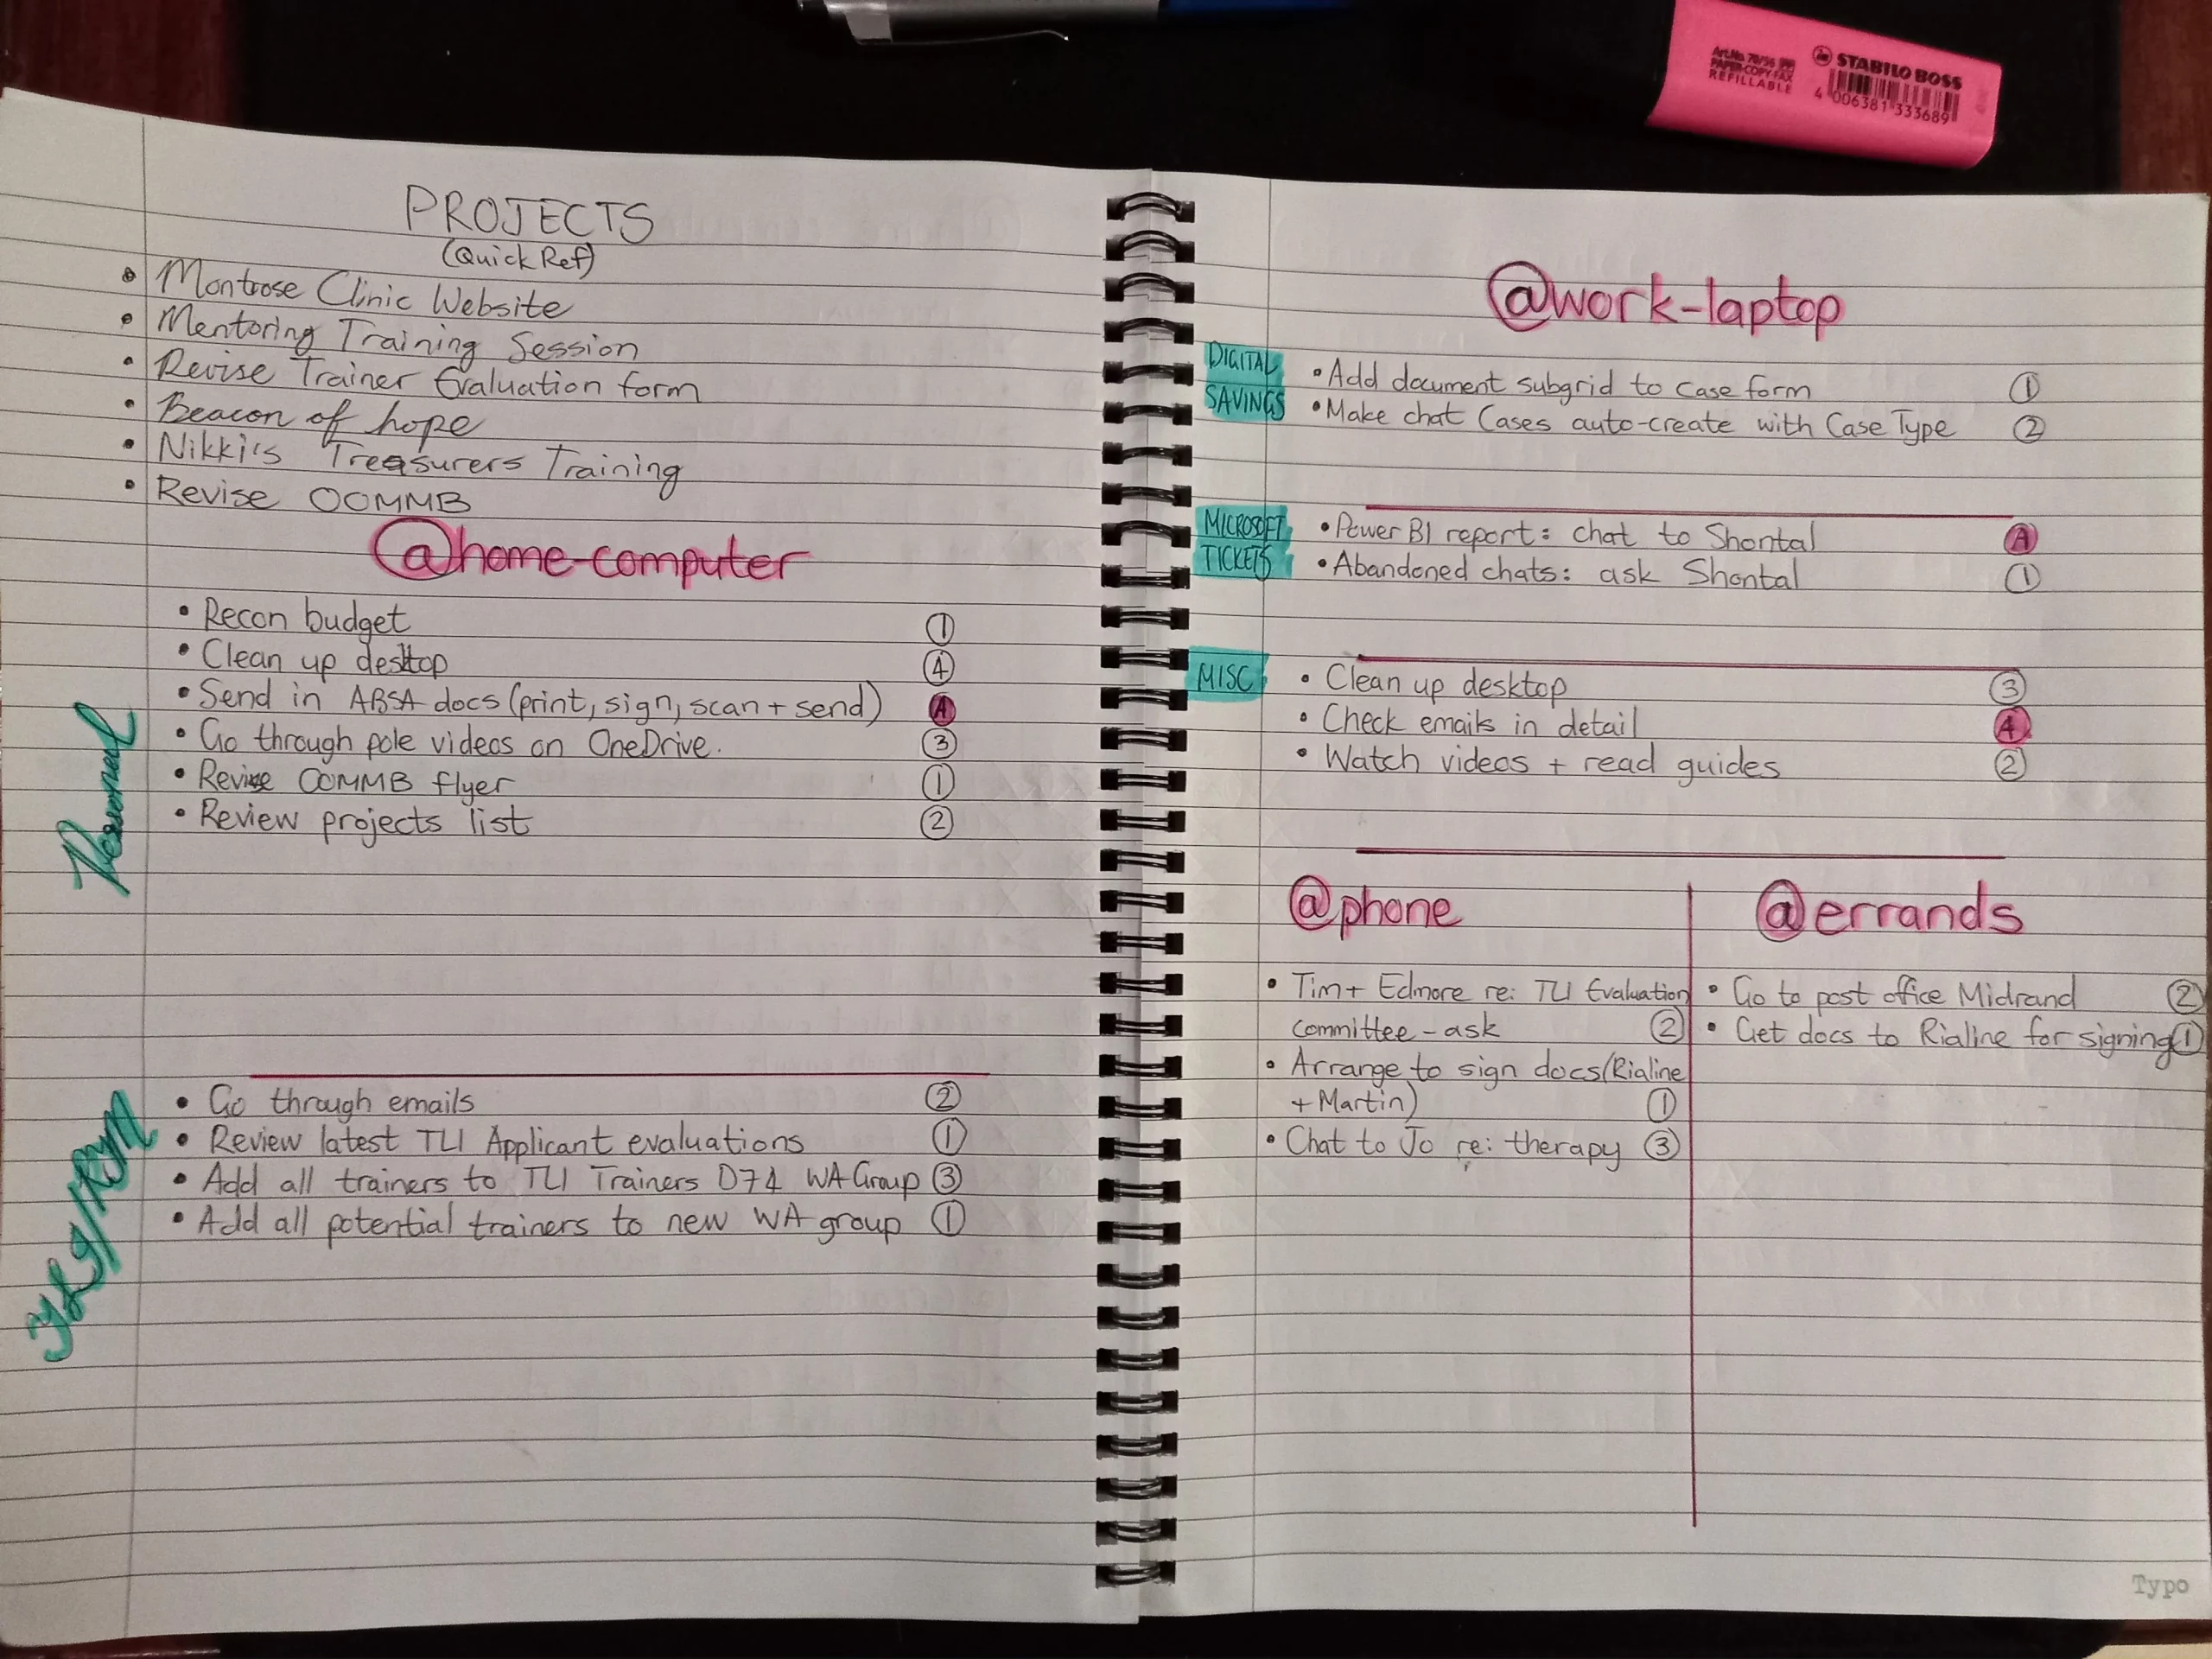 Art.No 70/56
PAPER-COPY-FAX
REFILLABLE
STABILO BOSS
4 006381 333689
PROJECTS
(Quick Ref)
• Montrose Clinic Website
• Mentoring Training Session
• Revise Trainer Evaluation form
• Beacon of hope
• Nikki's Treasurers Training
• Revise OOMMB
@home-computer
Personal
• Recon budget ①
• Clean up desktop ④
• Send in ABSA docs (print, sign, scan + send) A
• Go through pole videos on OneDrive. ③
• Revise OOMMB flyer ①
• Review projects list ②
• Go through emails ②
• Review latest TLI Applicant evaluations ①
• Add all trainers to TLI Trainers D74 WA Group ③
• Add all potential trainers to new WA group ①
@work-laptop
DIGITAL
SAVINGS
• Add document subgrid to case form ①
• Make chat Cases auto-create with Case Type ②
MICROSOFT
TICKETS
• Power BI report: chat to Shontal A
• Abandoned chats: ask Shontal ①
MISC
• Clean up desktop ③
• Check emails in detail A
• Watch videos + read guides ②
@phone
• Tim + Edmore re: TLI Evaluation
committee - ask ②
• Arrange to sign docs (Rialine
+ Martin) ①
• Chat to Jo re: therapy ③
@errands
• Go to post office Midrand ②
• Get docs to Rialine for signing ①
Typo